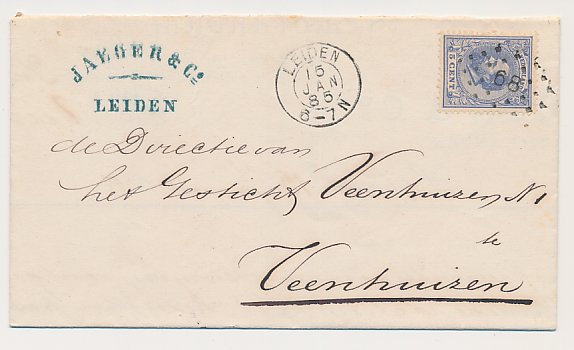 JAEGER & Co
LEIDEN
LEIDEN
15
JAN
85
6-7N
5 CENT
68
de Directie van
het Gesticht Veenhuizen N 1
te
Veenhuizen